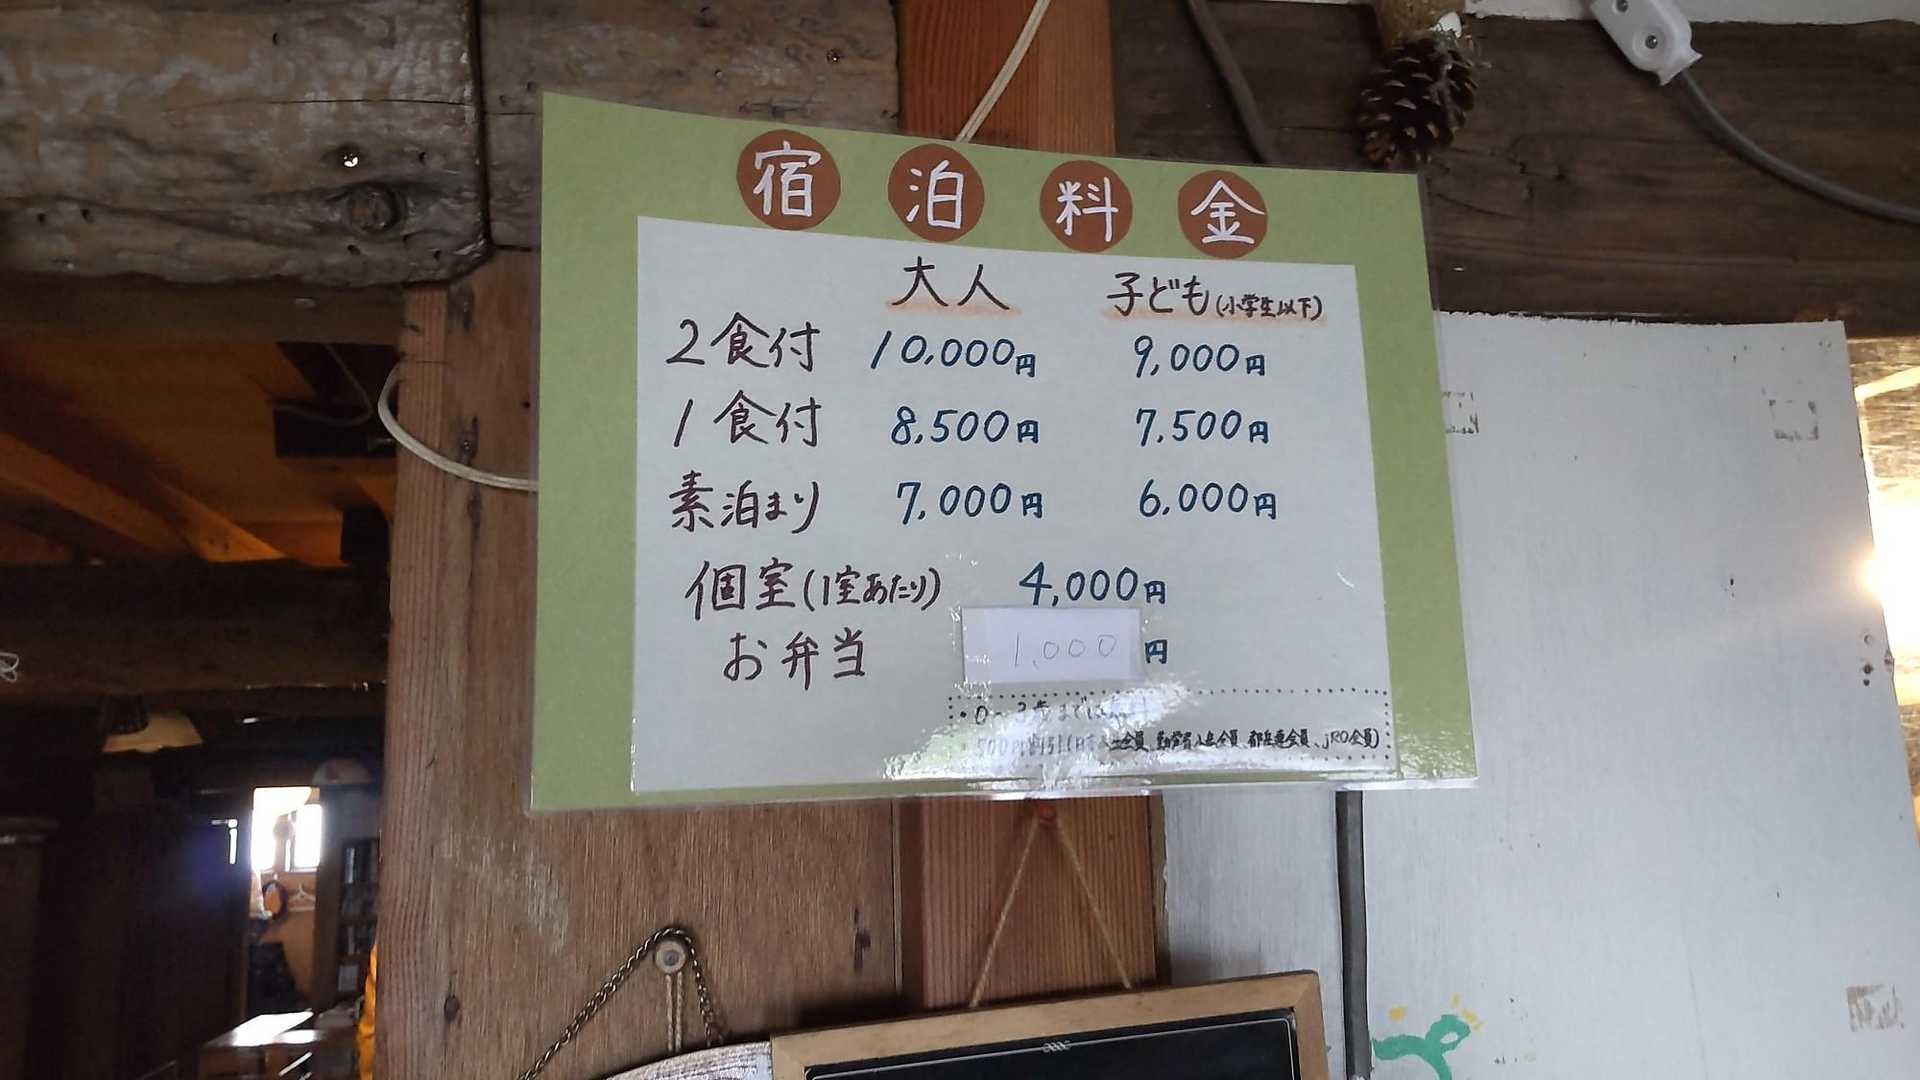 宿泊料金
大人 子ども(小学生以下)
2食付 10,000円 9,000円
1食付 8,500円 7,500円
素泊まり 7,000円 6,000円
個室(1室あたり) 4,000円
お弁当 1,000円
・0~3歳までは
500円割引(日 会員、勤労者山岳会員、都岳連会員、jRO会員)